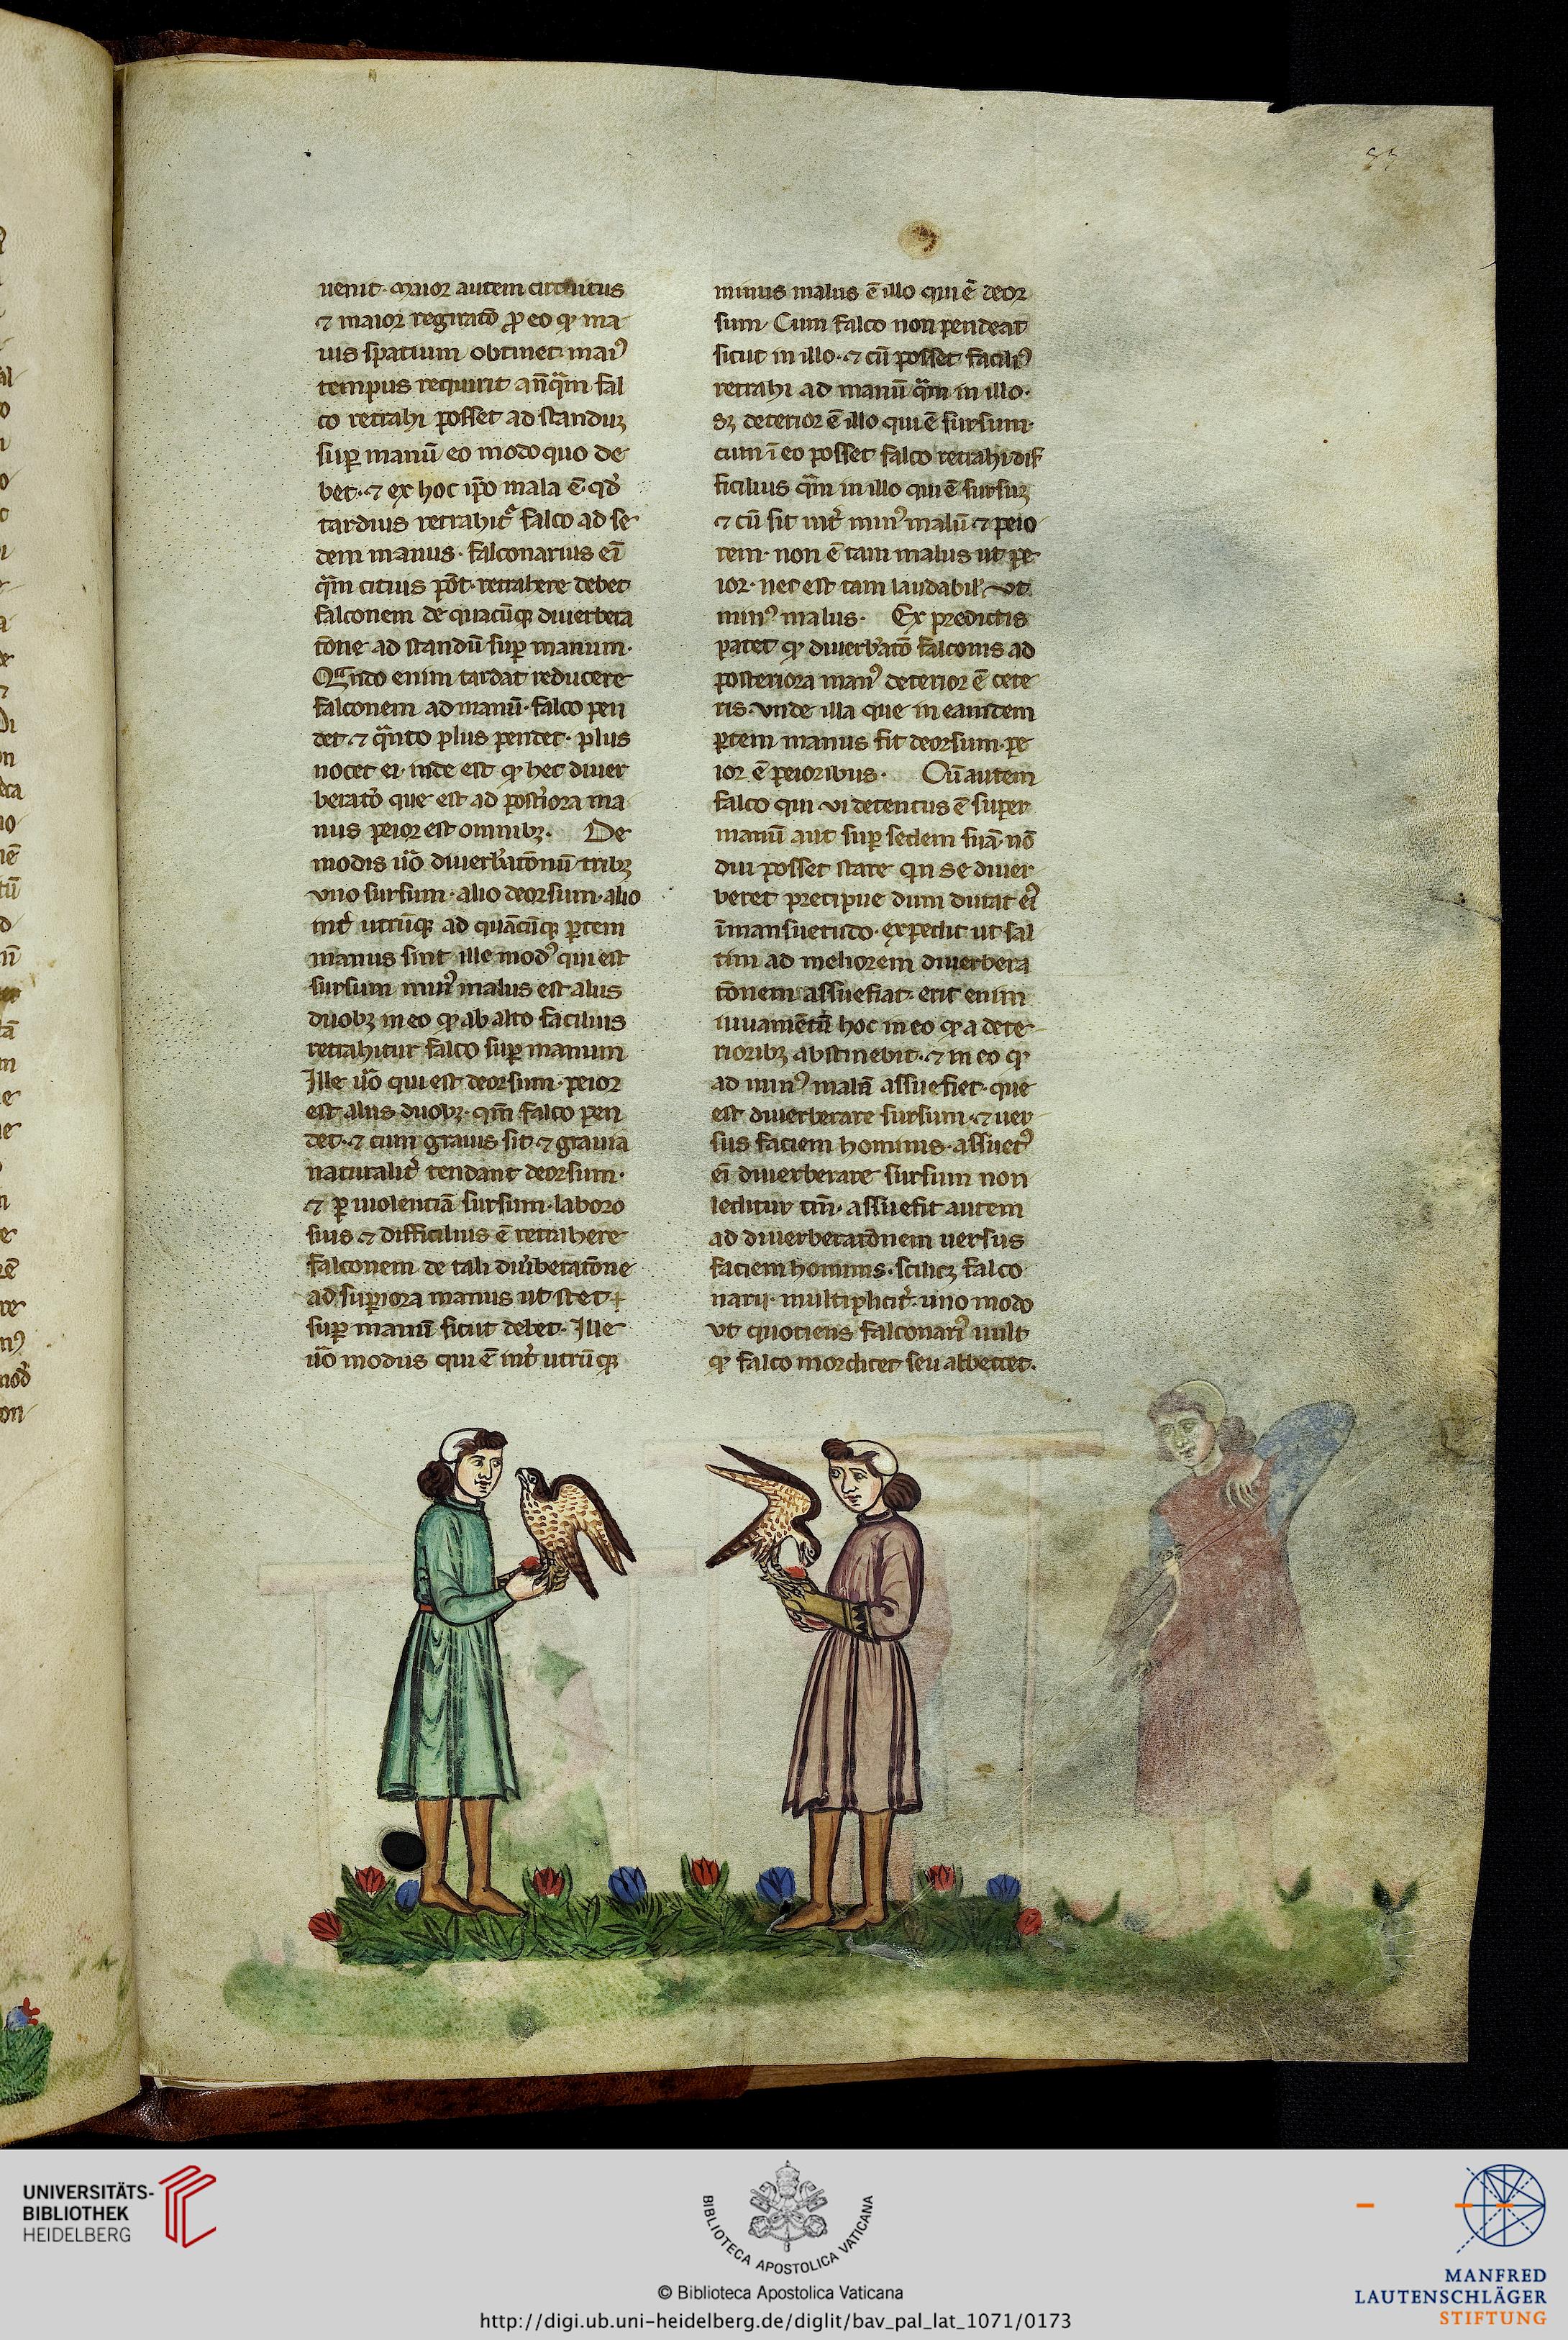 uenit. Maior autem circuitus
⁊ maior regiratō ꝓ eo ꝙ ma
ius spatium obtinet mai⁹
tempus requirit an̄q̄m fal
co retrahi posset ad standuꝫ
suꝑ manū eo modo quo de
bet. ⁊ ex hoc ip̄o mala ē. qd̓
tardius retrahit᷑ falco ad se
dem manus. falconarius ei̅
q̄m citius pōt. retrahere debet
falconem de quacūqꝫ diuerbera
tōne ad standū suꝑ manum.
Qn̄do enim tardat reducere
falconem ad manū. falco pen
det. ⁊ q̄nto plus pendet. plus
nocet ei. inde est ꝙ hec diuer
beratō que est ad post̓iora ma
nus peior est omnibꝫ. De
modis u̅o diuerb̓atōnū tribꝫ
vno sursum. alio deorsum. alio
int̓ utrūqꝫ ad quācūqꝫ ꝑtem
manus sint ille mod⁹ qui est
sursum min⁹ malus est aliis
duobꝫ in eo ꝙ ab alto facilius
retrahitur falco suꝑ manum
Ille u̅o qui est deorsum. peior
est aliis duobꝫ. qm̄ falco pen
det. ⁊ cum grauis sit. ⁊ grauia
naturalit̓ tendant deorsum.
⁊ ꝑ uiolentiā sursum. laborio
sius ⁊ difficilius ē retrahere
falconem de tali diu̓beratōne
ad suꝑiora manus ut stet
suꝑ manū sicut debet. Ille
u̅o modus qui ē int̓ utrūqꝫ
minus malus ē illo qui ē deor
sum. Cum falco non pendeat
sicut in illo. ⁊ cū posset facili⁹
retrahi ad manū q̄m in illo.
sꝫ deterior ē illo qui ē sursum.
cum ī eo posset falco retrahi dif
ficilius q̄m in illo qui ē sursuꝫ
⁊ cū sit int̓ min⁹ malū ⁊ peio
rem. non ē tam malus ut pe
ior. nec est tam laudabil̓ ut
min⁹ malus. Ex predictis
patet ꝙ diuerb̓atō falconis ad
posteriora man⁹ deterior ē cete
ris. vnde illa que in eamdem
ꝑtem manus fit deorsum. pe
ior ē peioribus. Cū autem
falco qui vi detentus ē super
manū aut suꝑ sedem suā. nō
diu posset stare qn se diuer
beret precipue dum durat ei̅
īmansuetudo. expedit ut sal
tim ad meliorem diuerbera
tōnem assuefiat. erit enim
iuuamētū hoc in eo ꝙ a dete
rioribꝫ abstinebit. ⁊ in eo ꝙ
ad min⁹ malā assuefiet. que
est diuerberare sursum. ⁊ uer
sus faciem hominis. assuet⁹
ei̅ diuerberare sursum non
leditur tm̄. assuefit autem
ad diuerberatōnem uersus
faciem hominis. scilicꝫ falco
narij. multiplicit̓. uno modo
vt quotiens falconari⁹ uult
ꝙ falco mordicet seu abbeccet.
UNIVERSITÄTS-
BIBLIOTHEK
HEIDELBERG
BIBLIOTECA APOSTOLICA VATICANA
© Biblioteca Apostolica Vaticana
http://digi.ub.uni-heidelberg.de/diglit/bav_pal_lat_1071/0173
MANFRED
LAUTENSCHLÄGER
STIFTUNG